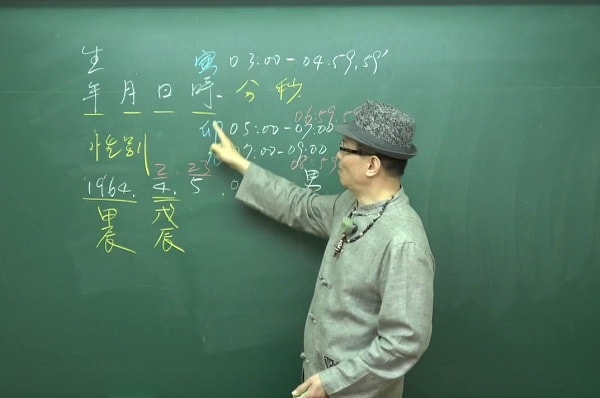 生 寅 03:00-04:59,59'
年月日時. 分秒
06:59,59
卯 05:00-07:00
性別 07:00-09:00
08:59
2. 23 男
1964. 4. 5 .0
甲 戊
辰 辰